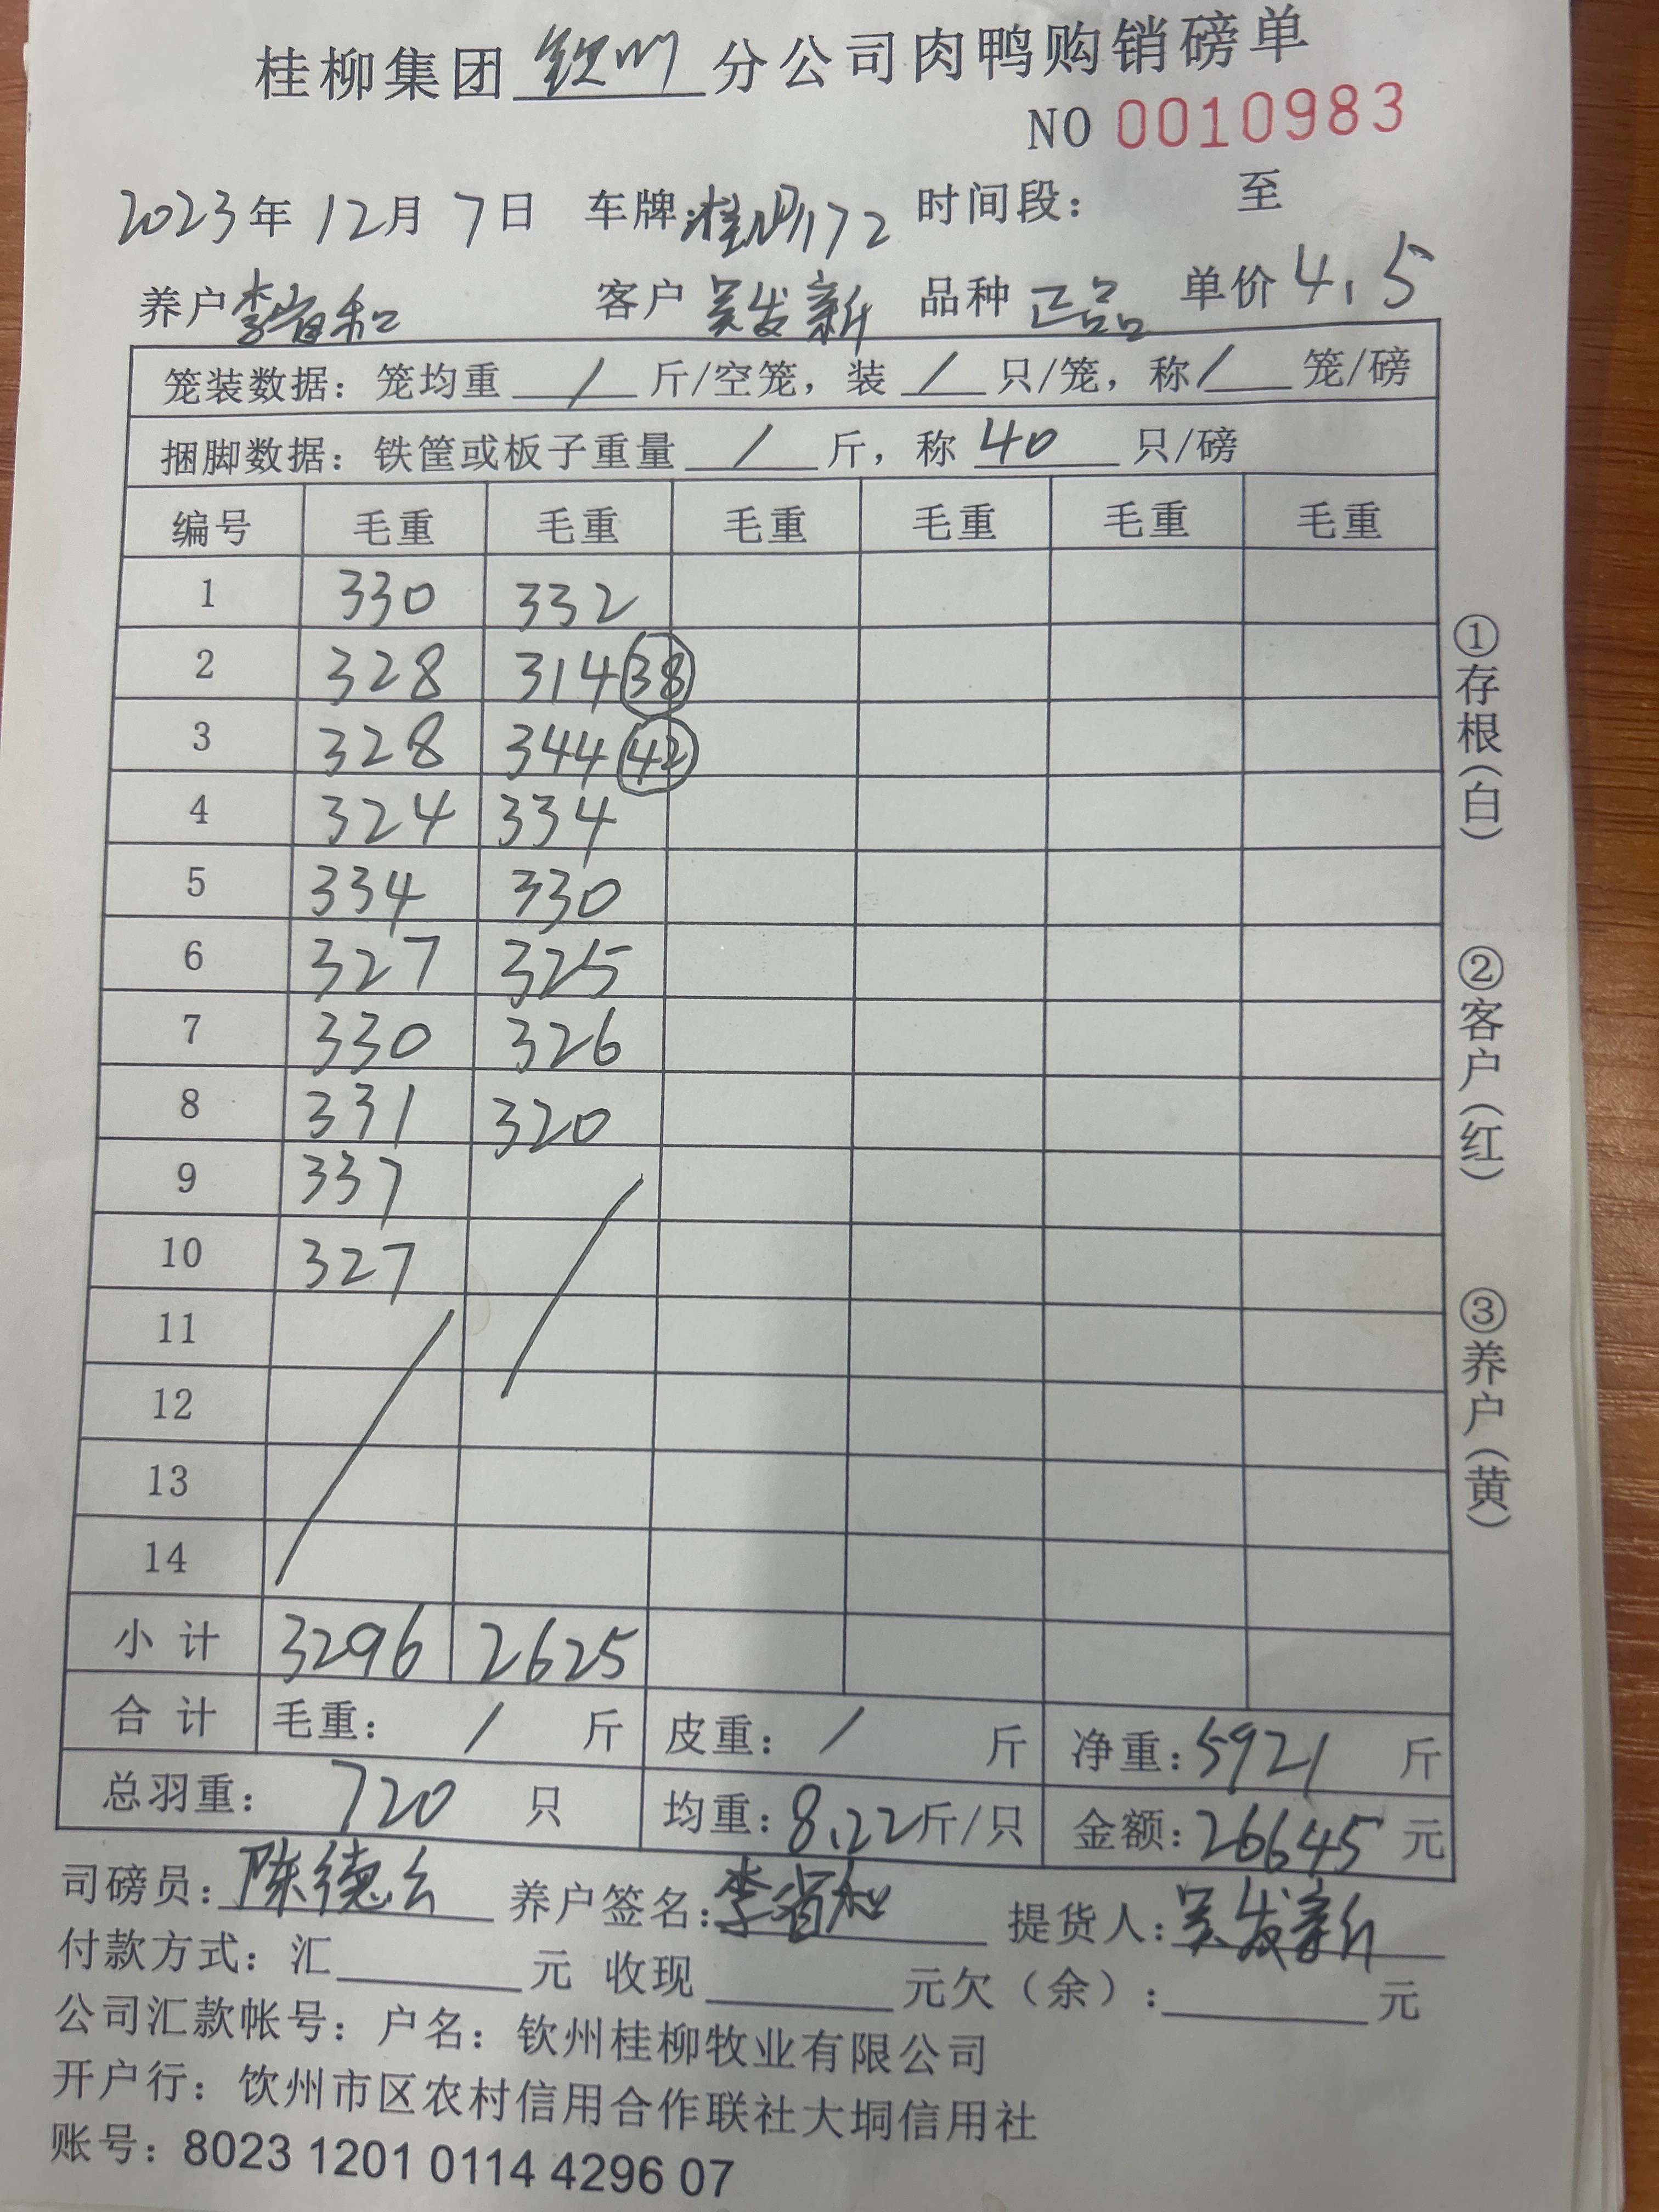 桂柳集团 钦州 分公司肉鸭购销磅单
NO 0010983
2023年 12月 7日 车牌: 172 时间段： 至
养户 李省和 客户 吴发新 品种 正品 单价 4.5
笼装数据：笼均重 / 斤/空笼，装 / 只/笼，称 / 笼/磅
捆脚数据：铁筐或板子重量 / 斤，称 40 只/磅
编号 毛重 毛重 毛重 毛重 毛重 毛重
1 330 332
2 328 314 38
3 328 344 42
4 324 334
5 334 330
6 327 325
7 330 326
8 331 320
9 337
10 327
11
12
13
14
小计 3296 2625
合计 毛重： / 斤 皮重： / 斤 净重：5921 斤
总羽重： 720 只 均重：8.22斤/只 金额：26645 元
司磅员：陈德云 养户签名：李省和 提货人：吴发新
付款方式：汇 元 收现 元欠（余）： 元
公司汇款帐号：户名：钦州桂柳牧业有限公司
开户行：钦州市区农村信用合作联社大垌信用社
账号：8023 1201 0114 4296 07
①存根（白） ②客户（红） ③养户（黄）